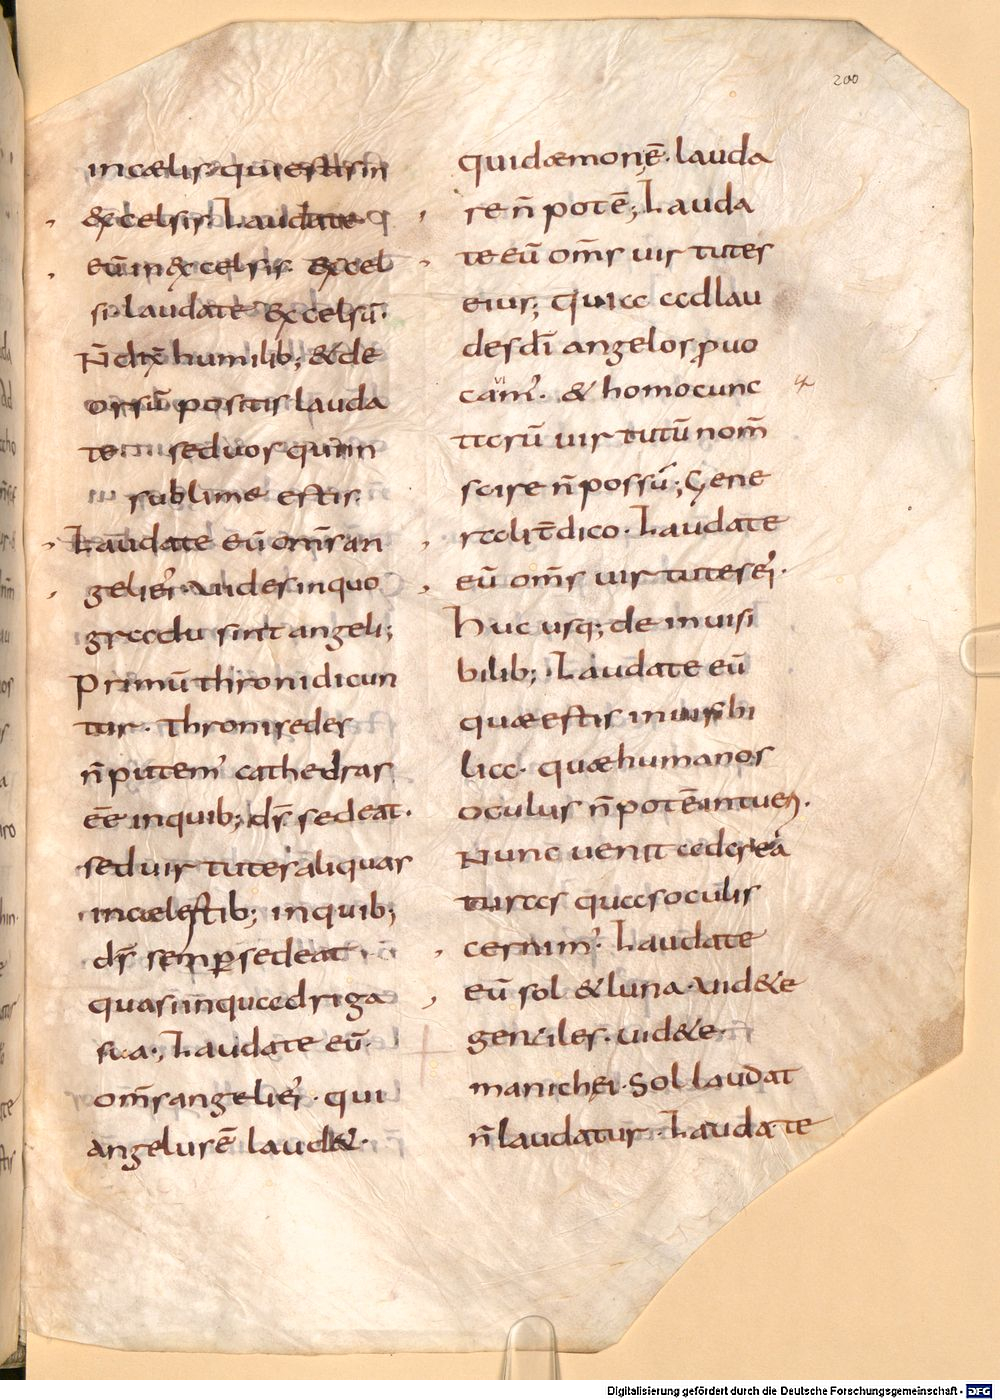 200
incælis quiestisin
&celsis. Laudate
eū in&celsis. &cel
si laudate &celsū.
N̄ dix̄ humilib; & de
orsū positis lauda
te sed uos qui in
sublime estis.
Laudate eū om̄s an
geli eiꝰ. uides inquo
gradu sint angeli;
Primū throni dicun
tur. Throni sedes
n̄ putemꝰ cathedras
ēē inquib; dr̄ sedeat.
sed uirtutes aliquas
incælestib; inquib;
dr̄ semꝑ sedeat
quasi inquadriga
sua; Laudate eū.
om̄s angeli eiꝰ. qui
angelus ē laud&.
qui dæmon ē. lauda
re n̄ potē; Lauda
te eū om̄s uirtutes
eius; Quia adlau
des dī angelos ꝓuo
camꝰ. & homo cunc
taru uirtutū nom̄
scire n̄ possū; Gene
rali t̄ dico. Laudate
eū om̄s uirtutes eiꝰ.
Huc usq; de inuisi
bilib; Laudate eū
quæ estis inuisibi
lia. quæ humanos
oculus n̄ potē intueri.
Nunc uenit ad crea
turas quas oculis
cernimꝰ. Laudate
eū sol & luna. uid&e
gentiles. uid&e
manichei. Sol laudat
n̄ laudatur. Laudate
Digitalisierung gefördert durch die Deutsche Forschungsgemeinschaft - DFG